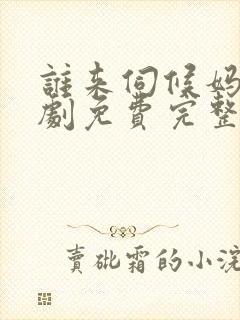 誰来伺候妈
劇免費完整
賣砒霜的小浣